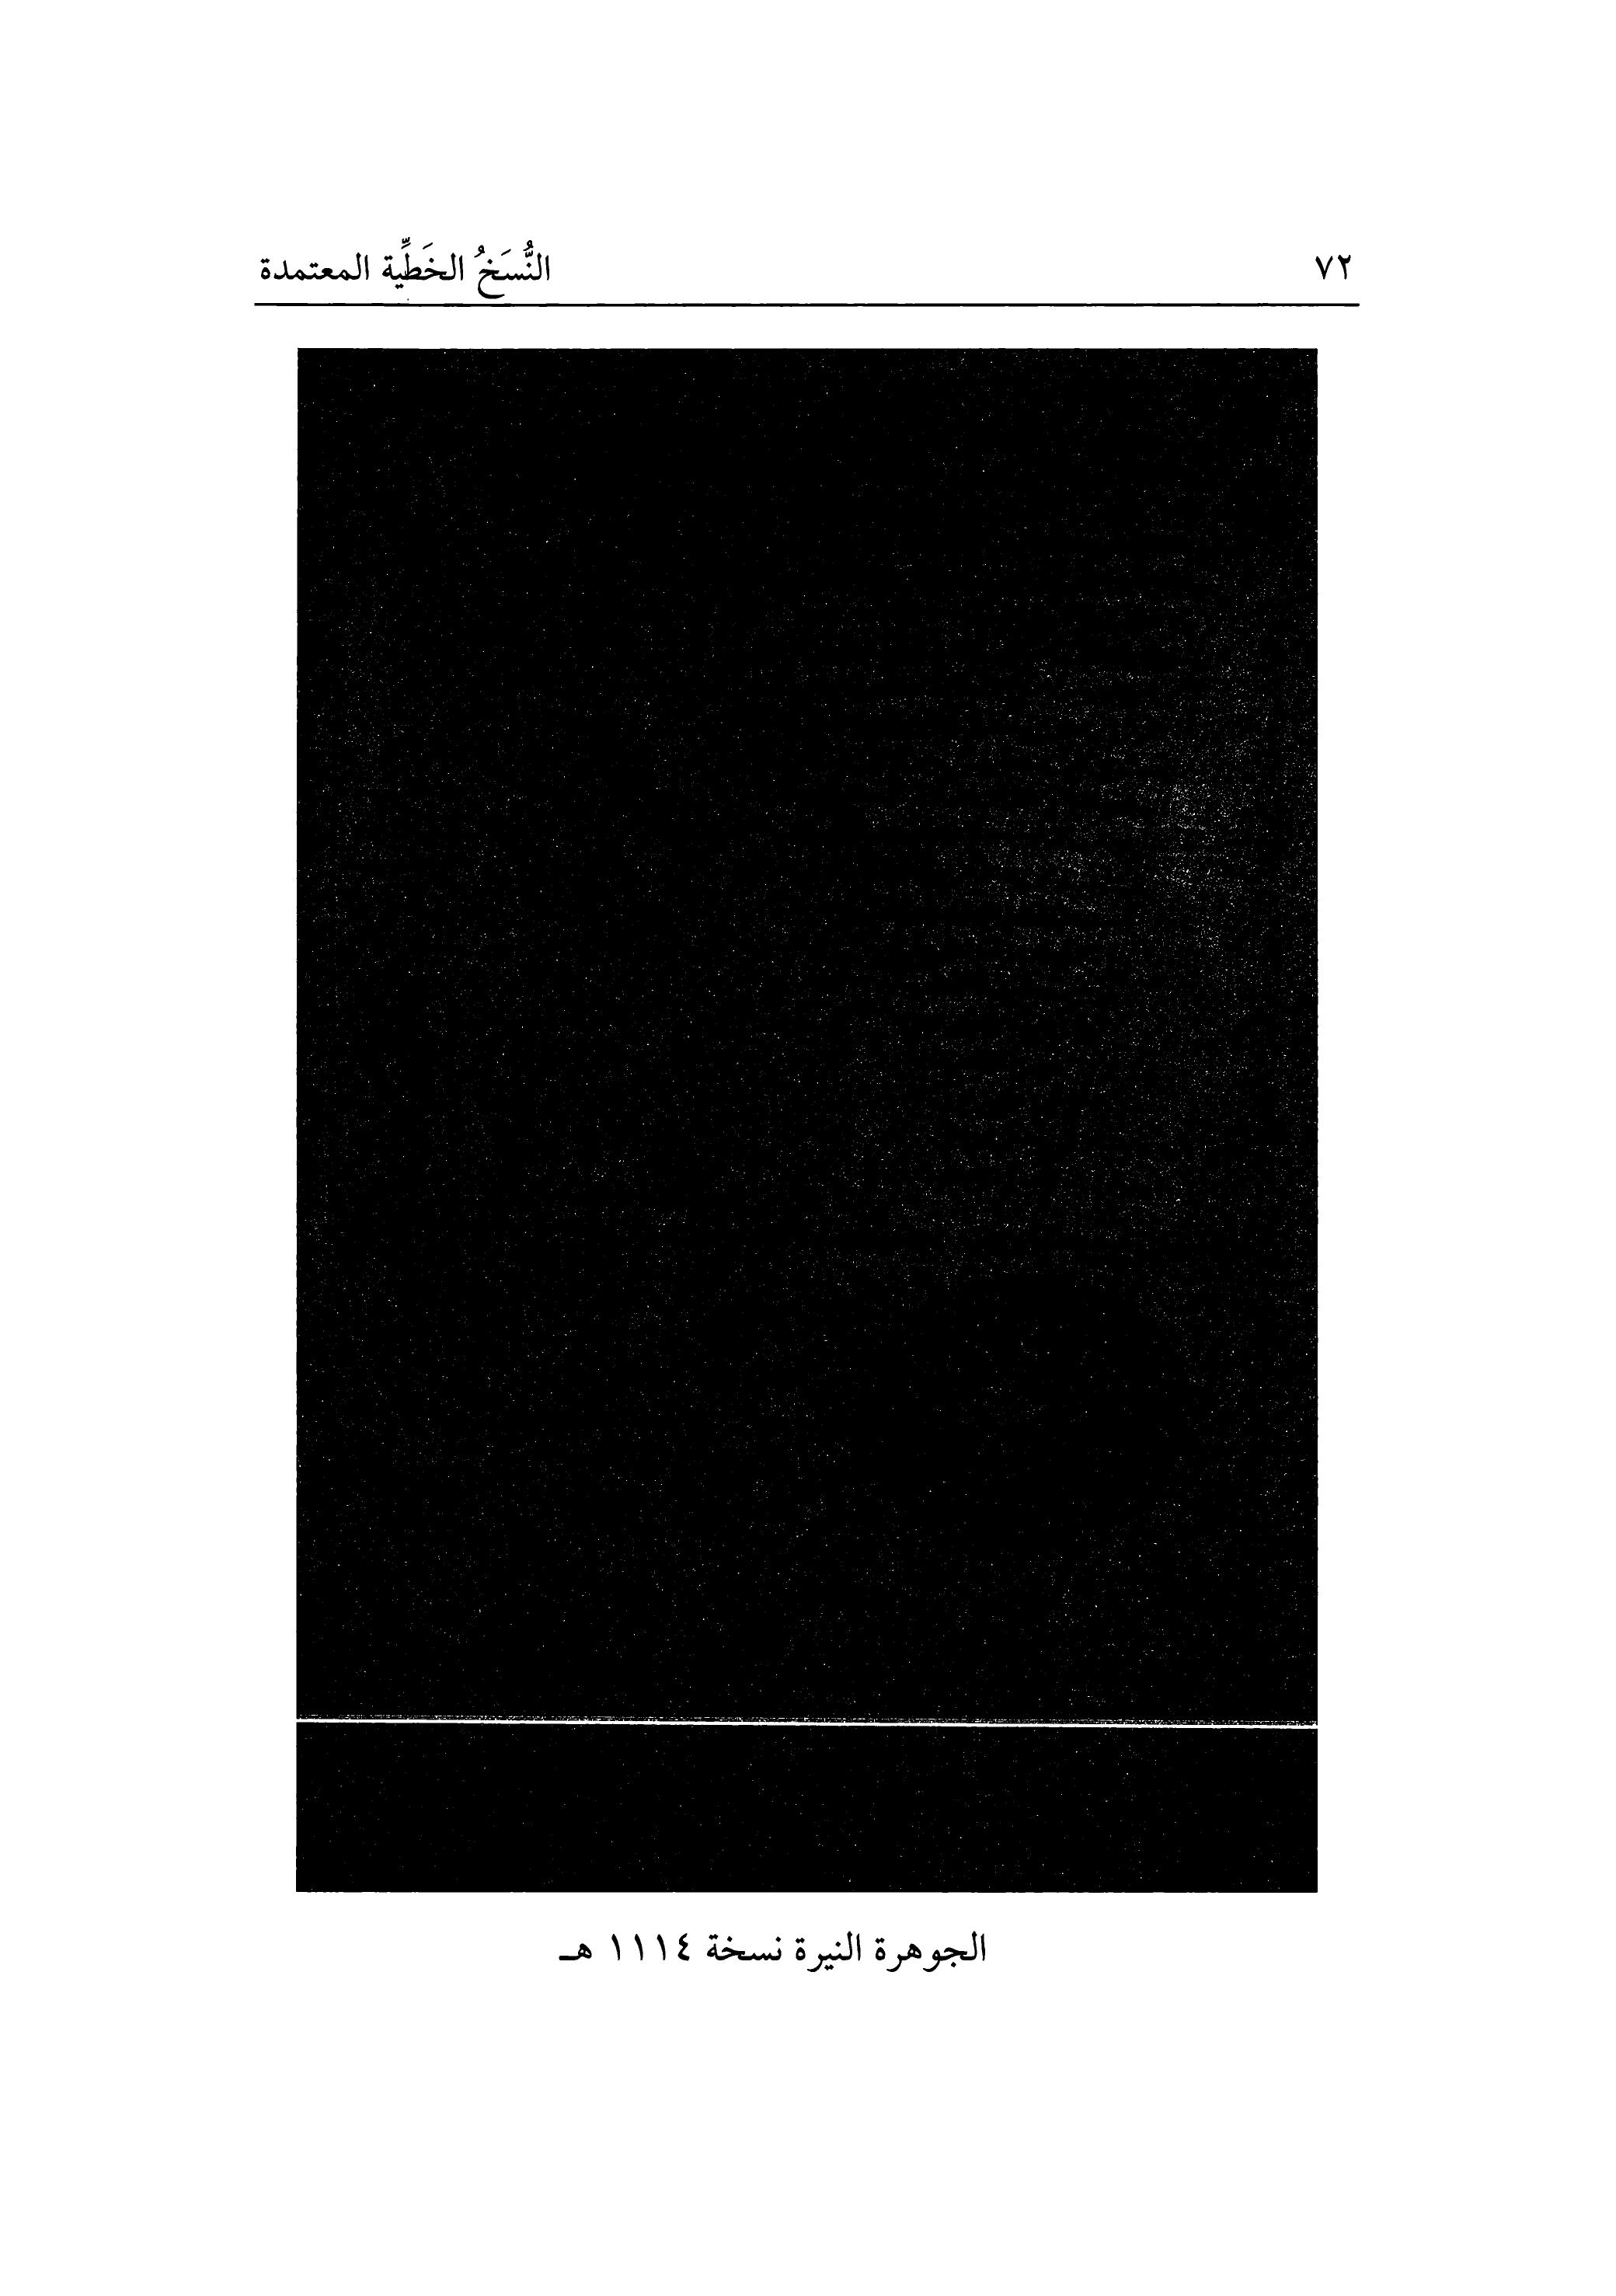 ٧٢ النُّسَخُ الخَطِّية المعتمدة
الجوهرة النيرة نسخة ١١١٤ هـ